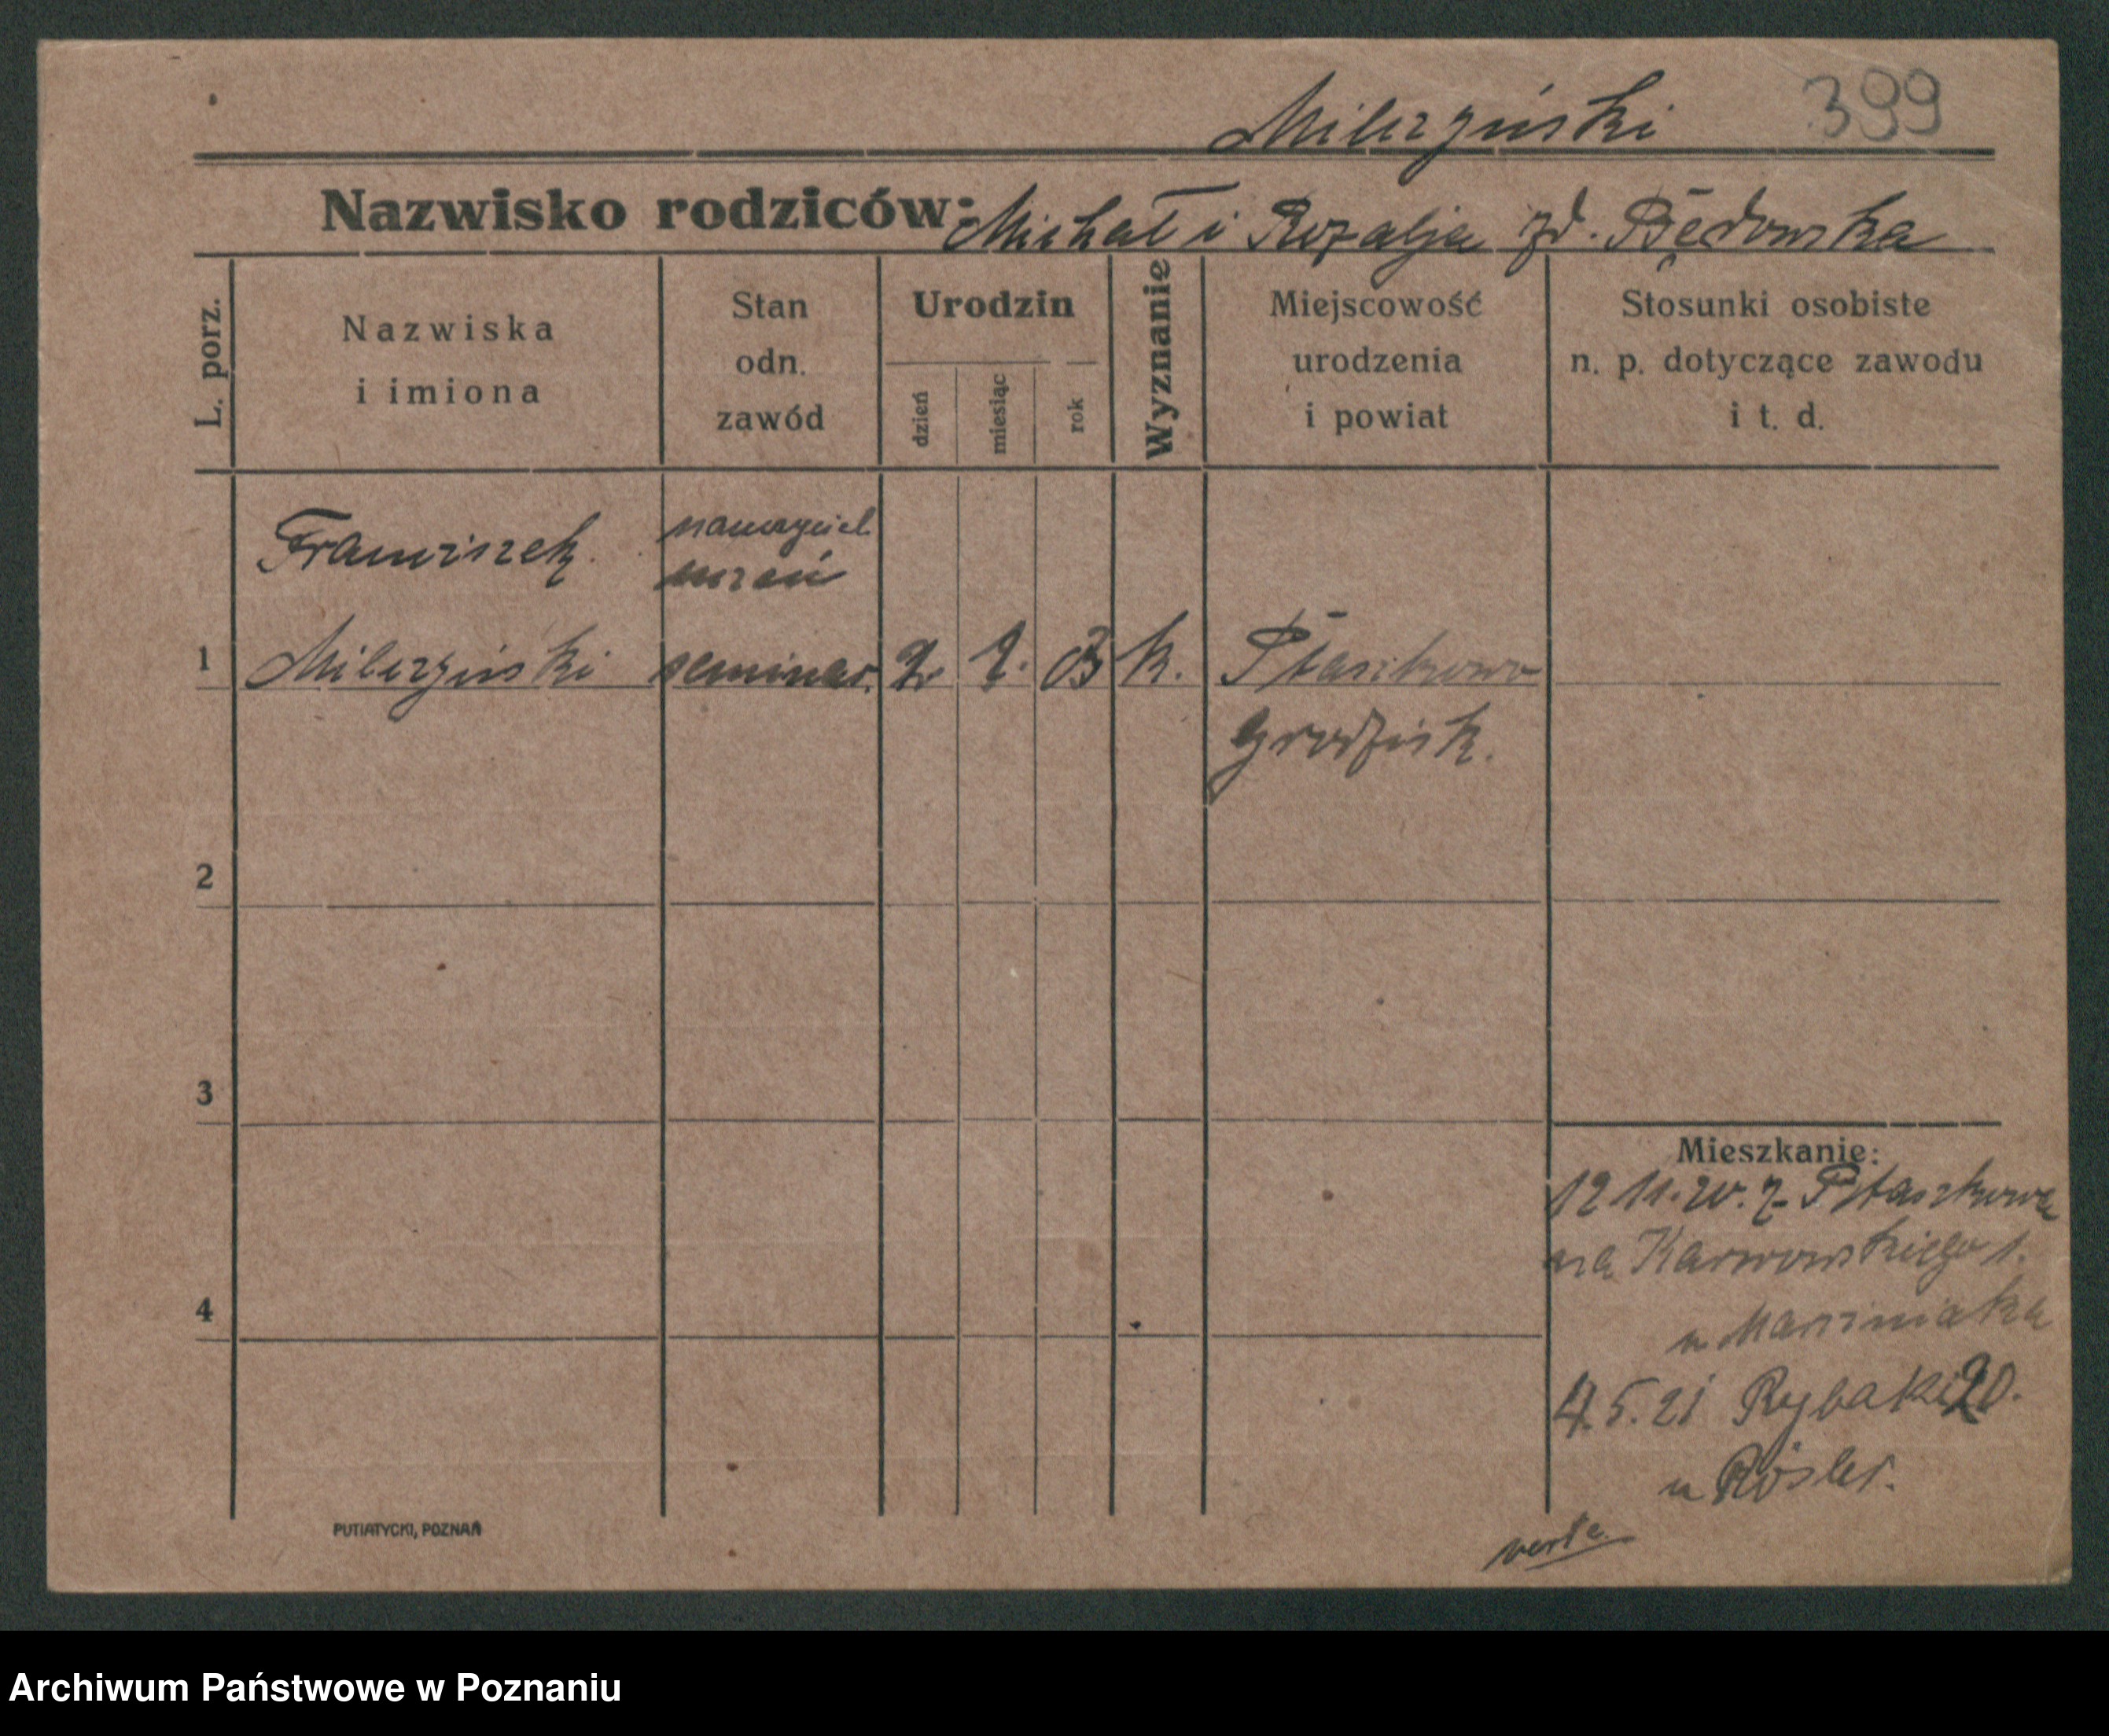 Milczyński 399
Nazwisko rodziców: Michał i Rozalja zd. Będowska
L. porz.
Nazwiska
i imiona
Stan
odn.
zawód
Urodzin
dzień
miesiąc
rok
Wyznanie
Miejscowość
urodzenia
i powiat
Stosunki osobiste
n. p. dotyczące zawodu
i t. d.
Franciszek
nauczyciel
uczeń
1 Milczyński seminar. 2. 1. 03 k. Ptaszkowo
Grodzisk.
2
3
4
Mieszkanie:
12 11. 20. z Ptaszkowa
na Karwowskiego 1.
u Marciniaka
4. 5. 21 Rybaki 20.
u Rösler.
verte
PUTIATYCKI, POZNAŃ
Archiwum Państwowe w Poznaniu